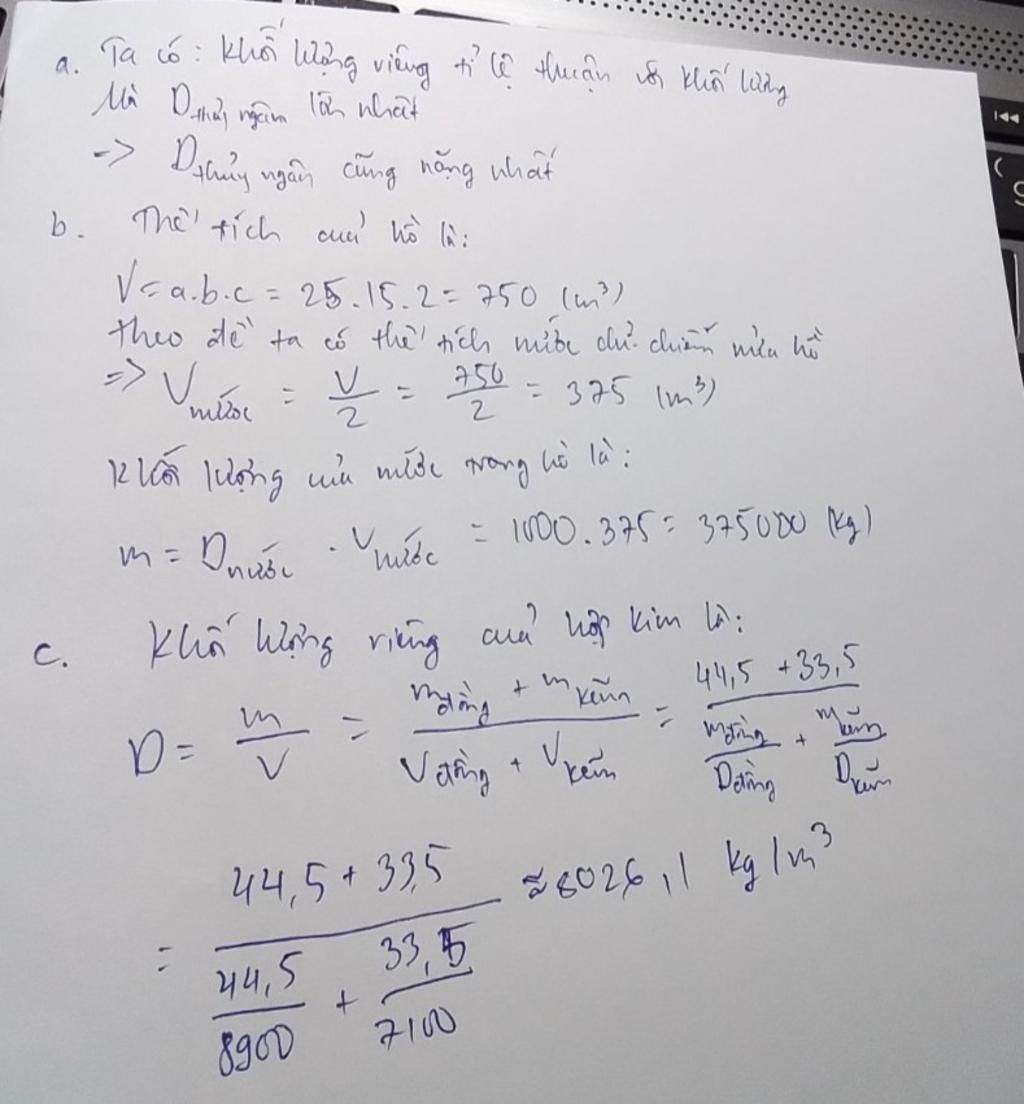 a. Ta có: Khối lượng riêng tỉ lệ thuận với khối lượng
Mà D thủy ngân lớn nhất
=> D thủy ngân cũng nặng nhất
b. Thể tích của hồ là:
V = a.b.c = 25.15.2 = 750 (m³)
theo đề ta có thể tích nước chỉ chiếm nửa hồ
=> V nước = V/2 = 750/2 = 375 (m³)
Khối lượng của nước trong hồ là:
m = D nước . V nước = 1000.375 = 375000 (kg)
c. Khối lượng riêng của hợp kim là:
D = m/V = (m đồng + m kẽm)/(V đồng + V kẽm) = (44,5 + 33,5)/(m đồng/D đồng + m kẽm/D kẽm)
= (44,5 + 33,5)/(44,5/8900 + 33,5/7100) ≈ 8026,1 kg/m³